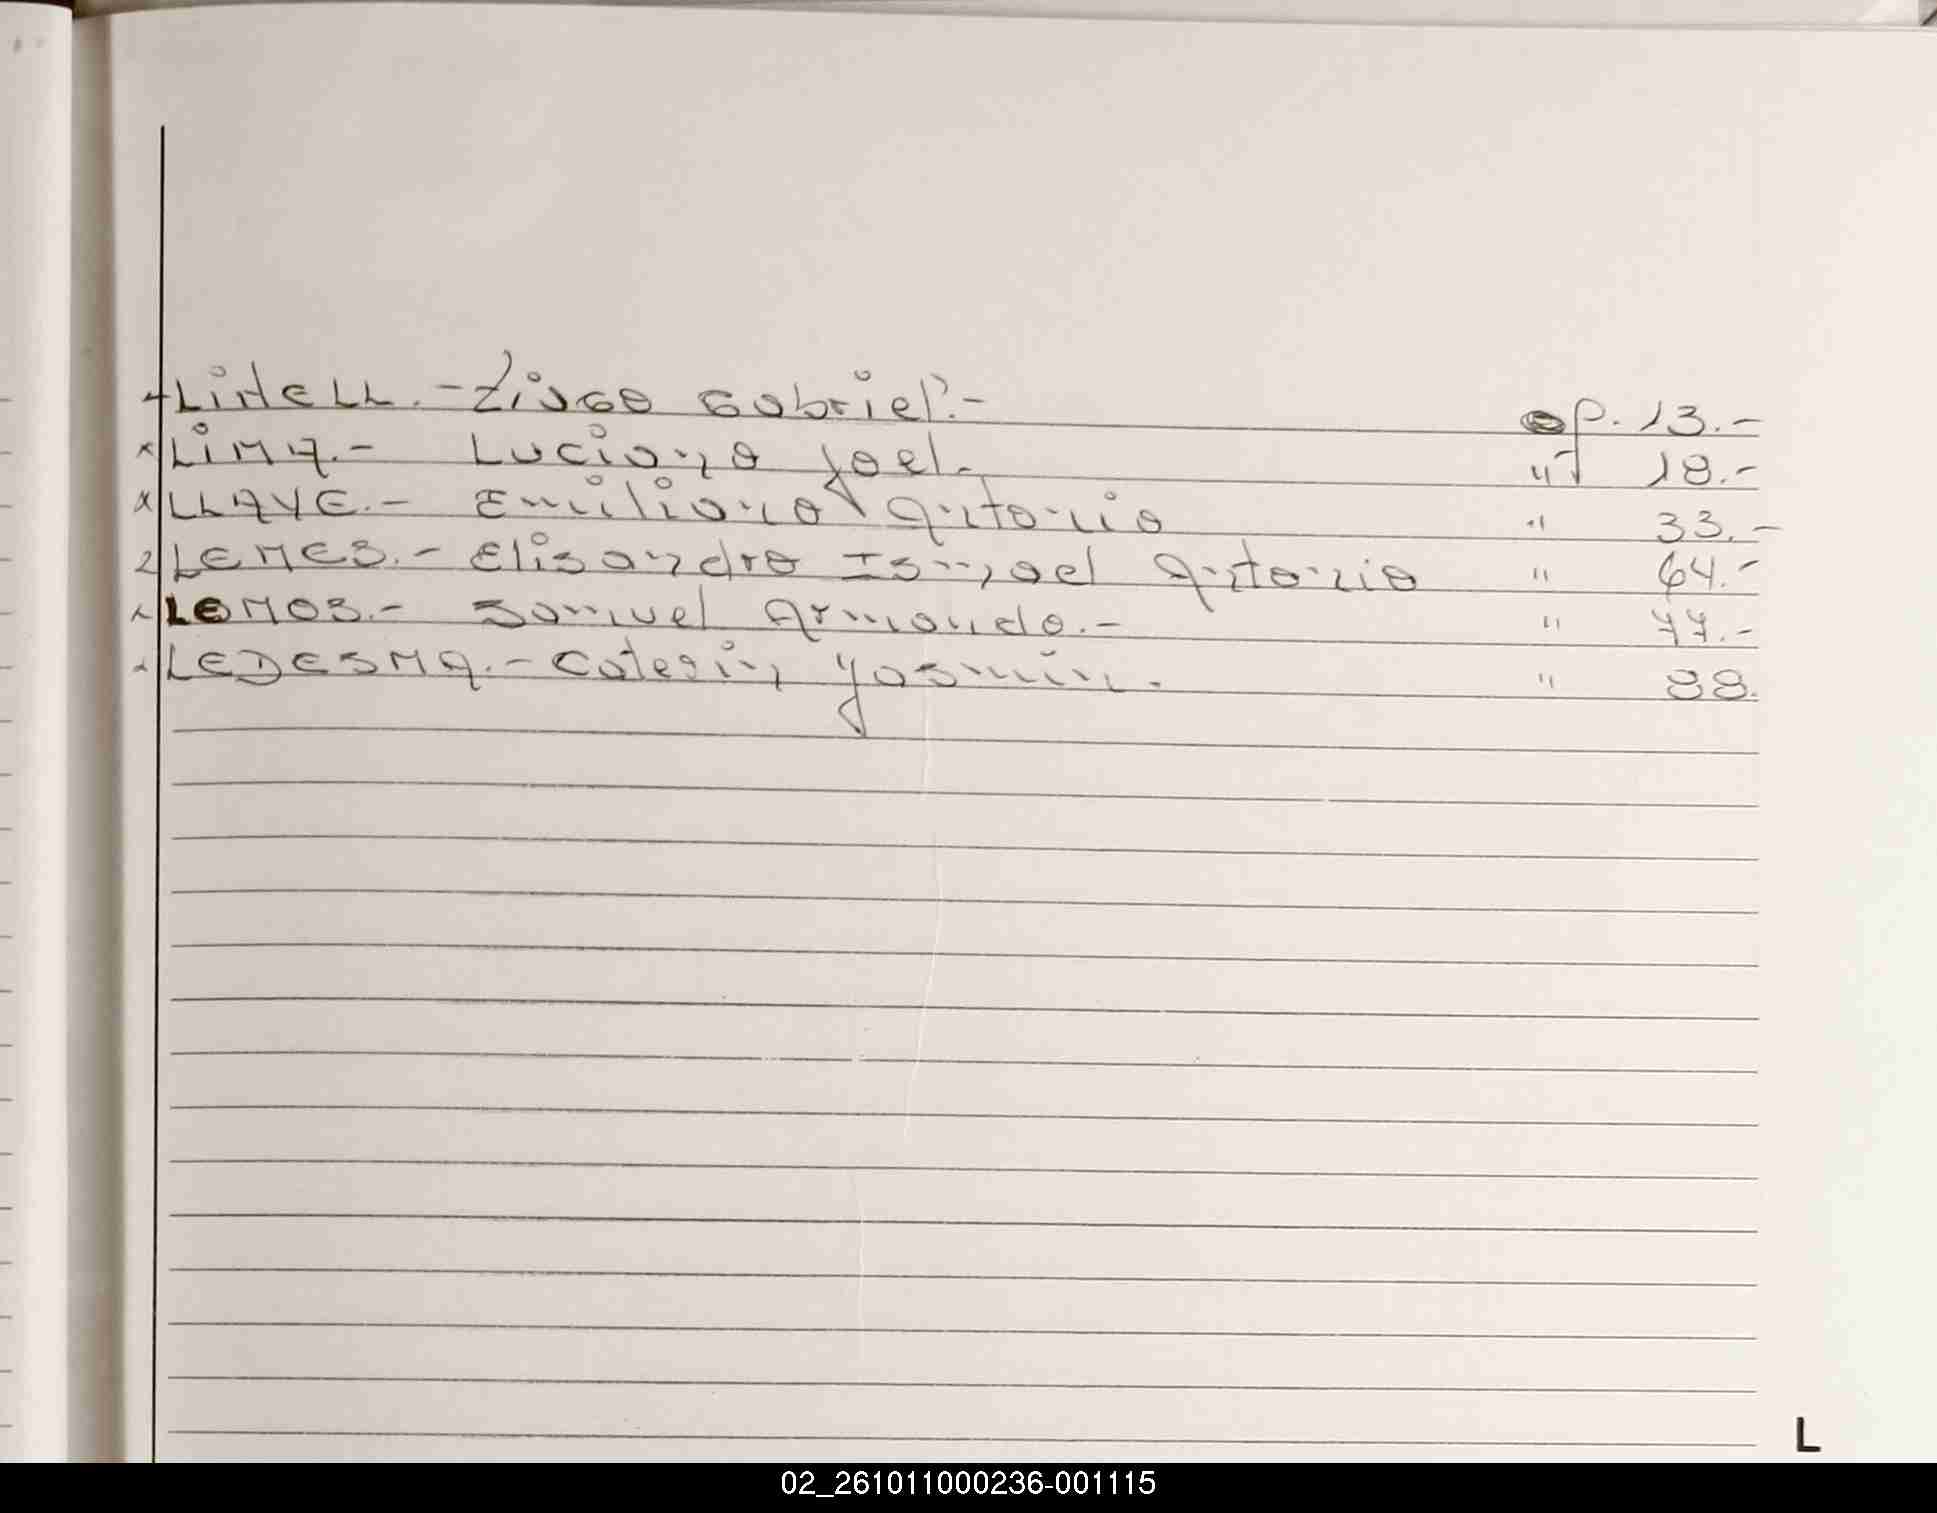 LINELL.- Ziugo Gabriel.- p. 13.-
LIMA.- Luciano Joel. " 18.-
LLAVE.- Emiliano Antonio " 33.-
LEMES.- Elisandro Ismael Antonio " 64.-
LEMOS.- Samuel Armando.- " 77.-
LEDESMA.- Caterin Yasmin. " 88.
L
02_261011000236-001115